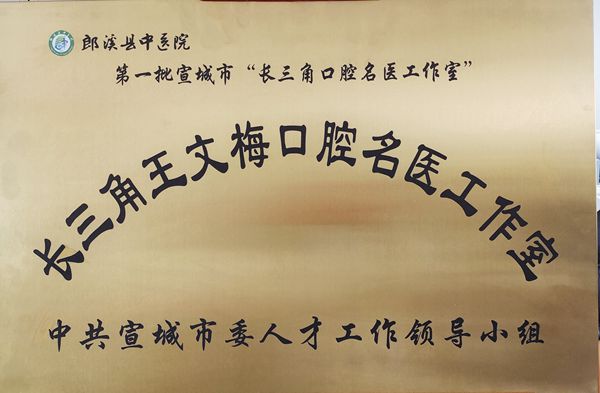 郎溪县中医院
第一批宣城市“长三角口腔名医工作室”
长三角王文梅口腔名医工作室
中共宣城市委人才工作领导小组